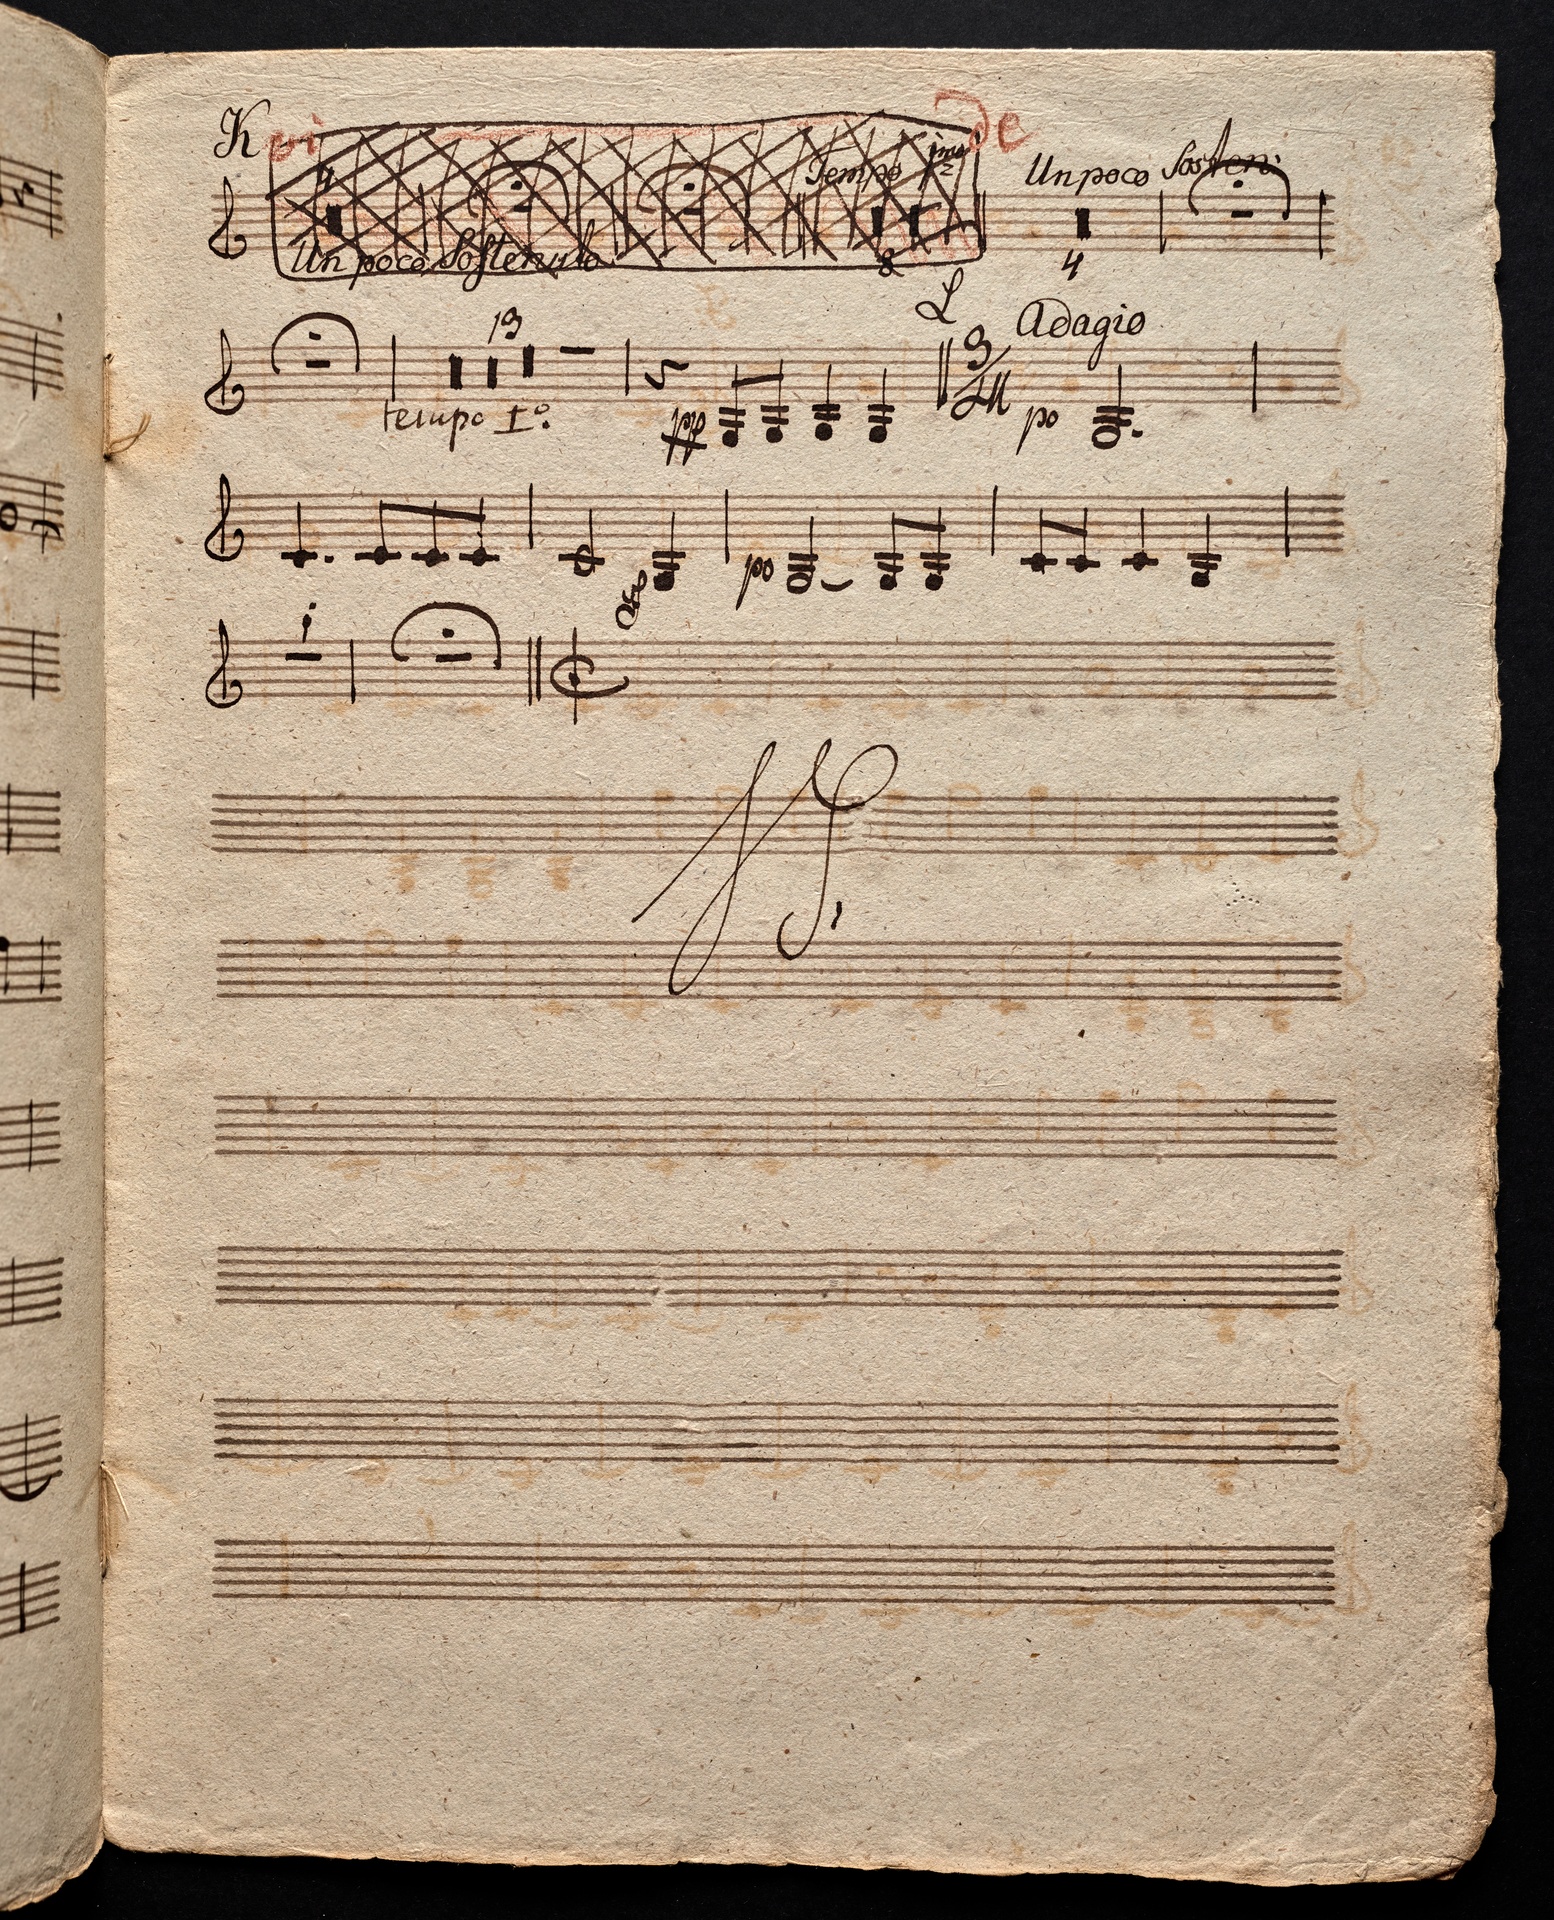 K vi de
4 Tempo 1mo Un poco Sosteni:
Un poco Sostenuto 8 4
L
13 3/4 Adagio
tempo 1º. pp po
po
1